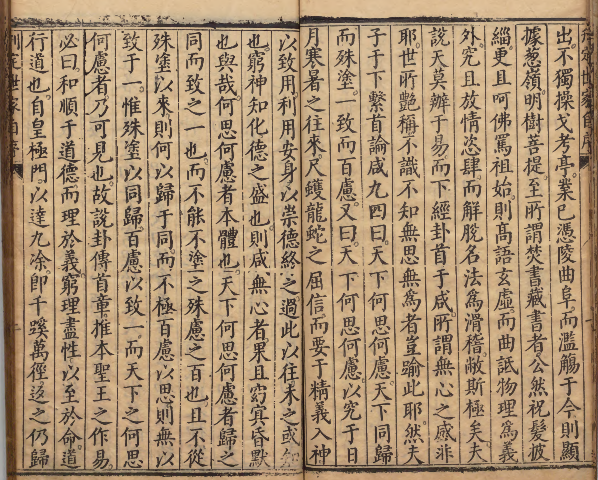 出不獨操戈考亭業已憑陵曲阜而濫觴于今則顯
據葱嶺明樹菩提至所謂焚書藏書者公然祝髮披
緇更且呵佛罵祖始則髙語玄虛而曲詆物理爲義
外究且放情恣肆而解脫名法爲滑稽敝斯極矣夫
說天莫辨于易而下經卦首于咸所謂無心之感非
耶世所艷稱不識不知無思無爲者豈踰此耶然夫
子于下繫首論咸九四曰天下何思何慮天下同歸
而殊塗一致而百慮又曰天下何思何慮以究于日
月寒暑之往來尺蠖龍蛇之屈信而要于精義入神
以致用利用安身以崇德終之過此以往未之或知
也窮神知化德之盛也則咸無心者果且窈冥昏默
也與哉何思何慮者本體也天下何思何慮者歸之
同而致之一也而不能不塗之殊慮之百也且不從
殊塗以來則何以歸于同而不極百慮以思則無以
致于一惟殊塗以同歸百慮以致一而天下之何思
何慮者乃可見也故說卦傳首章推本聖王之作易
必曰和順于道德而理於義窮理盡性以至於命道
行道也自皇極門以達九凃即千蹊萬徑迄之仍歸